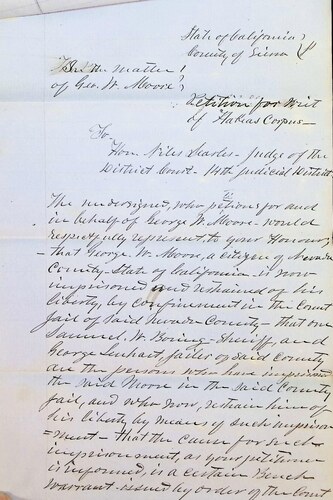 State of California
County of Sierra
In the matter
of Geo. W. Moore
Petition for Writ
of Habeas Corpus
To
Hon. Niles Searls - Judge of the
District Court - 14th Judicial District
The undersigned, who petions for and
in behalf of George W. Moore - would
respectfully represent, to your Honour,
- that George W. Moore, a citizen of Nevada
County - State of California - is now
imprisoned and restrained of his
liberty, by confinement in the Count
Jail of said Nevada County - that one
Samuel W. Boring - Sheriff, and
George Jailer of said County
are the persons who have imprison
the said Moore in the said County
Jail, and who now, retain him of
his liberty by means of such imprison
=ment - that the cause for such
imprisonment, as your petitione
is informed, is a certain Bench
Warrant - issued by order of the Cou